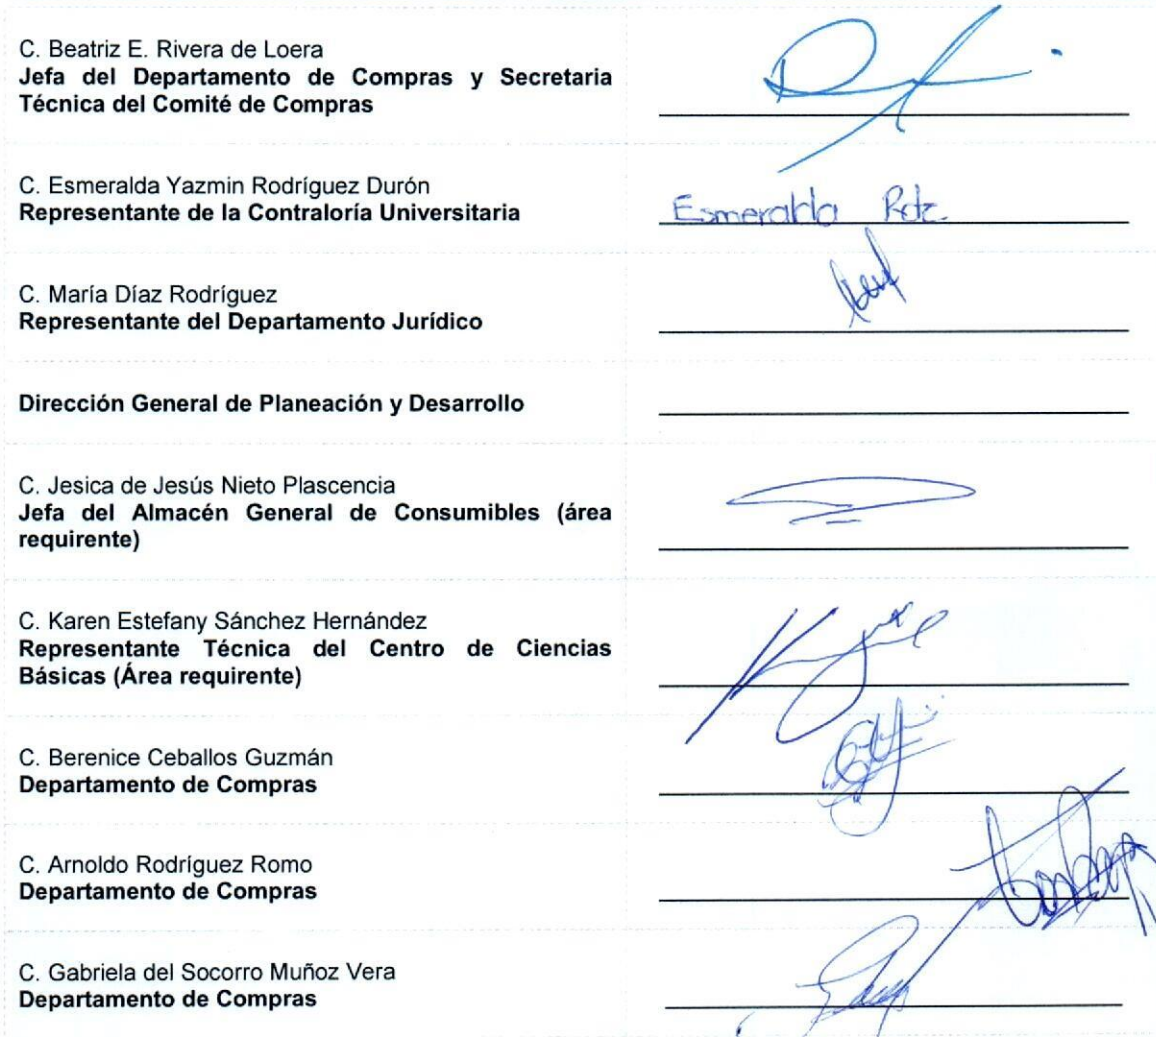 C. Beatriz E. Rivera de Loera
Jefa del Departamento de Compras y Secretaria
Técnica del Comité de Compras
C. Esmeralda Yazmin Rodríguez Durón
Representante de la Contraloría Universitaria
Esmeralda Rdz
C. María Díaz Rodríguez
Representante del Departamento Jurídico
Dirección General de Planeación y Desarrollo
C. Jesica de Jesús Nieto Plascencia
Jefa del Almacén General de Consumibles (área
requirente)
C. Karen Estefany Sánchez Hernández
Representante Técnica del Centro de Ciencias
Básicas (Área requirente)
C. Berenice Ceballos Guzmán
Departamento de Compras
C. Arnoldo Rodríguez Romo
Departamento de Compras
C. Gabriela del Socorro Muñoz Vera
Departamento de Compras